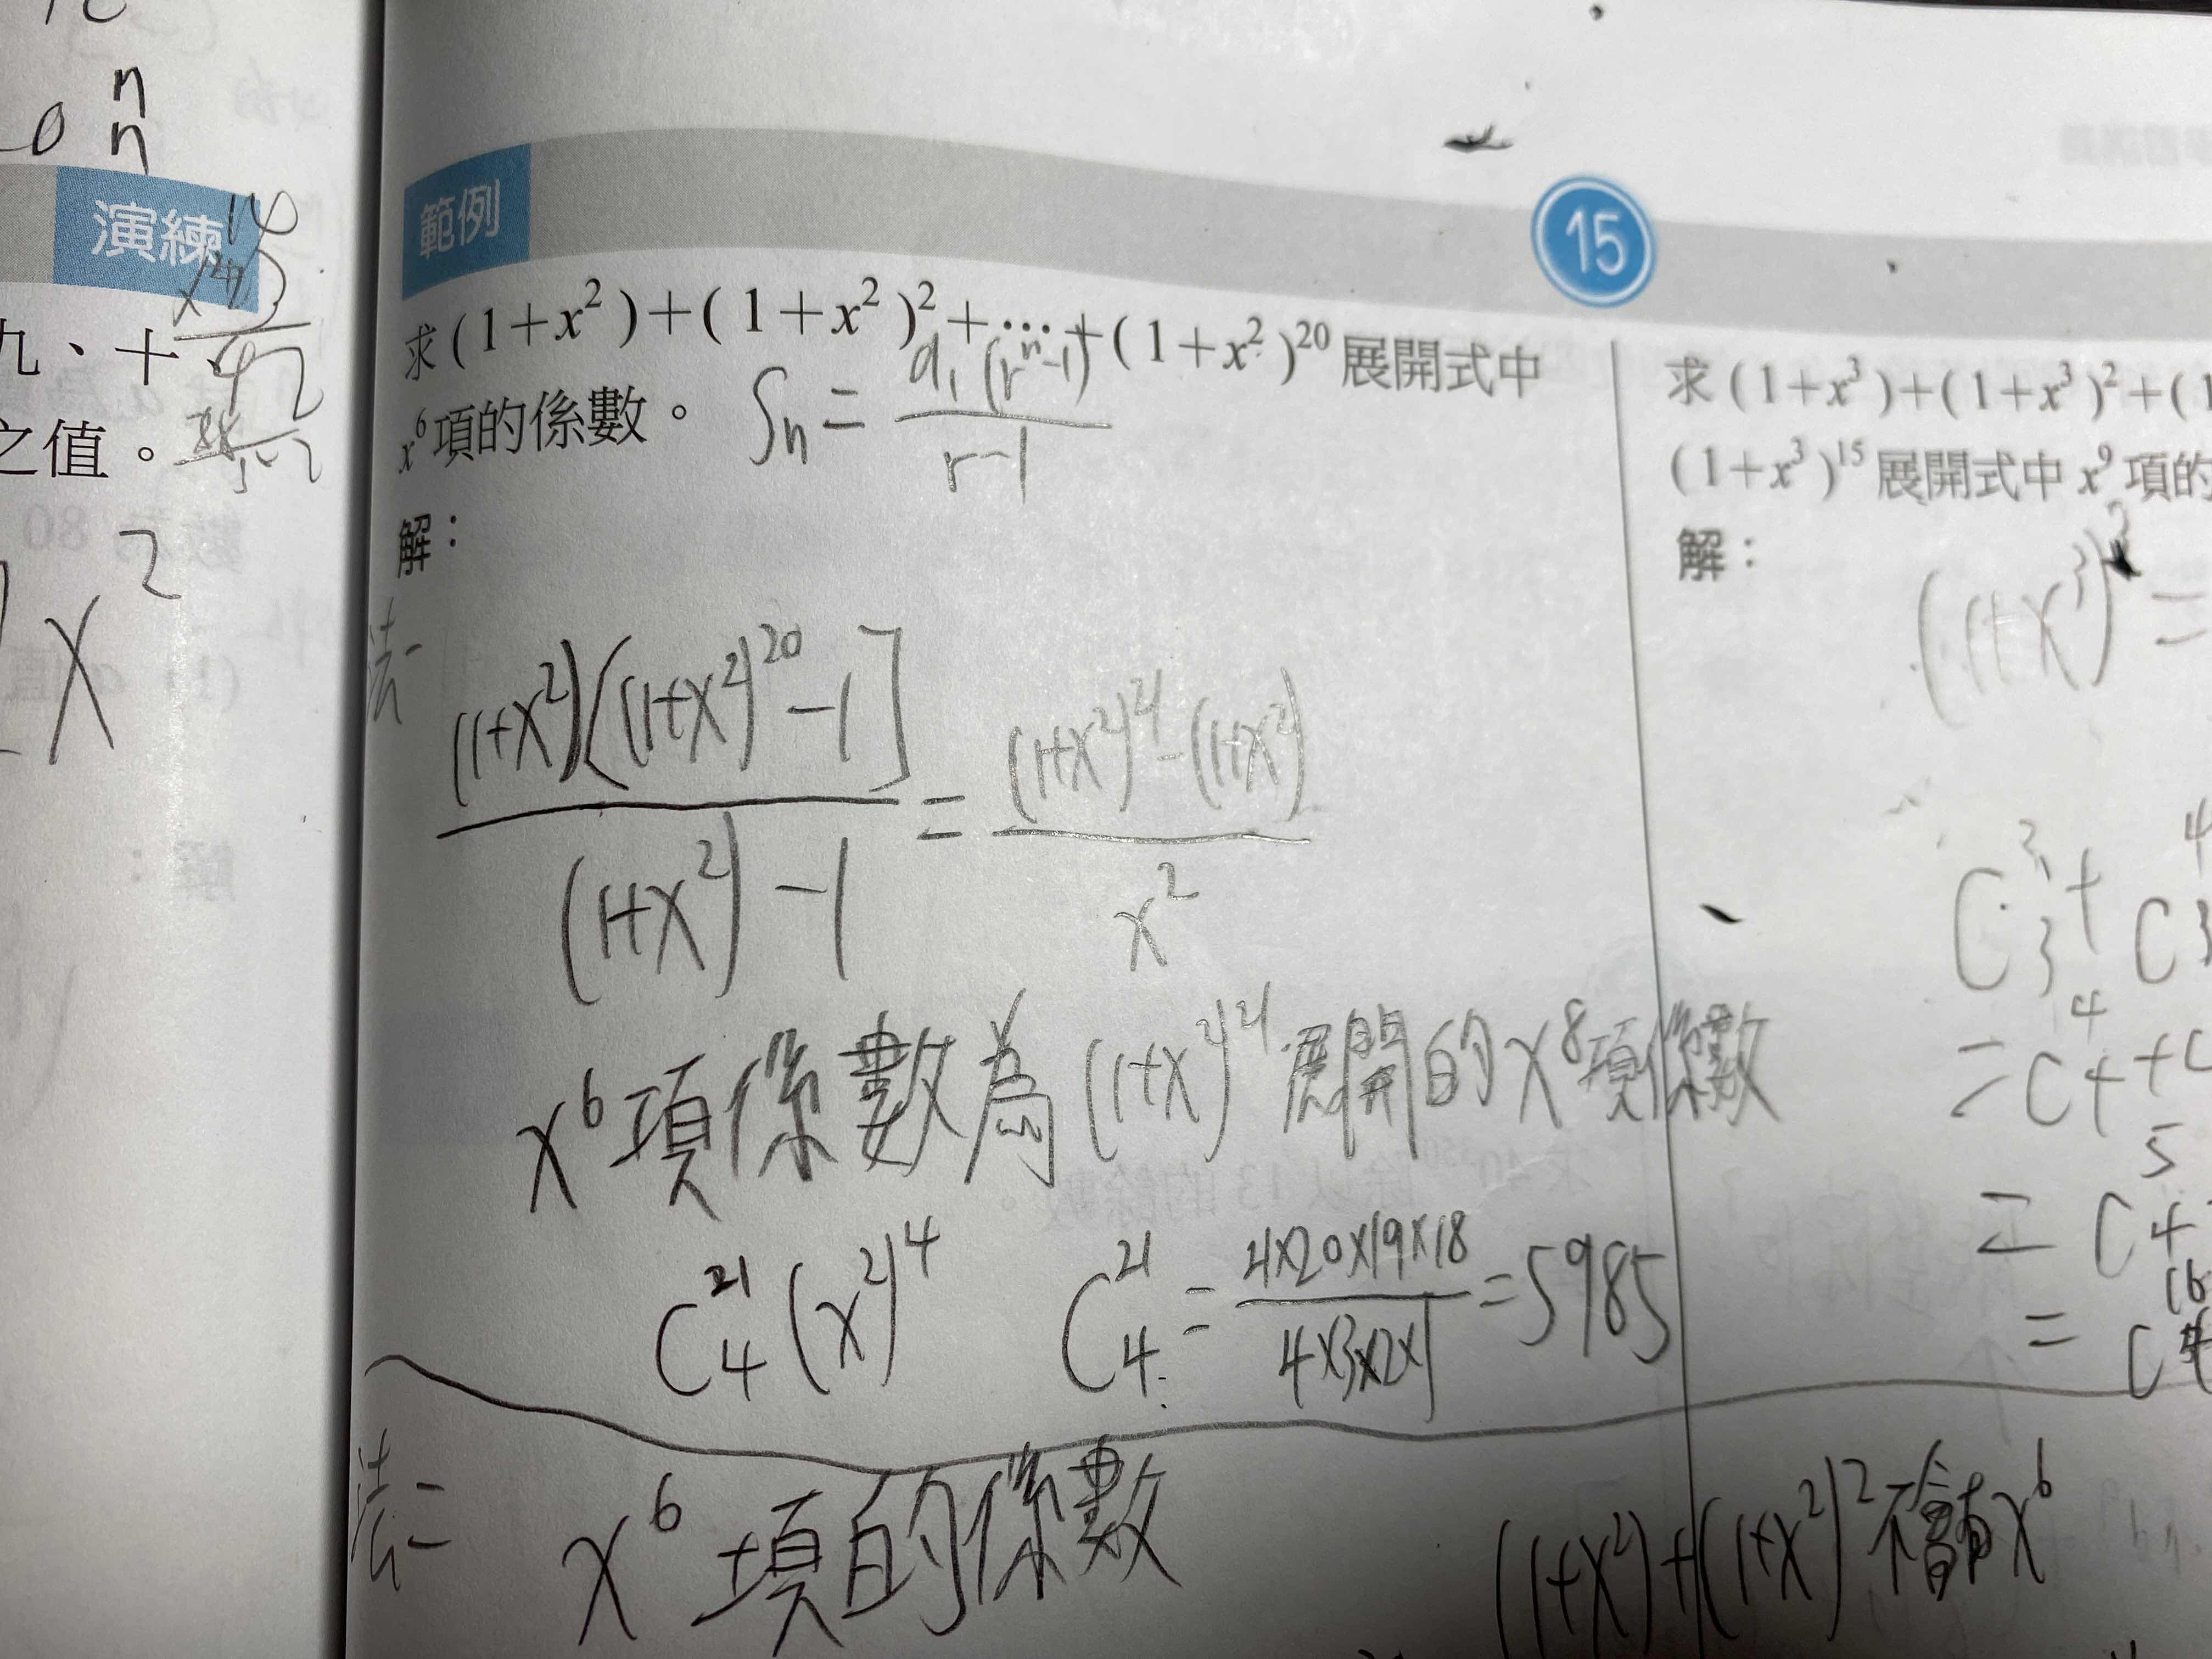 n
0 n
演練
九、十
之值。
42
x²
範例
15
求(1+x²)+(1+x²)²+⋯+(1+x²)²⁰展開式中
x⁶項的係數。 Sn = a₁(rⁿ-1)
r-1
解:
法一
(1+x²)[(1+x²)²⁰-1] = (1+x²)²¹-(1+x²)
(1+x²)-1 x²
x⁶項係數為(1+x²)²¹展開的x⁸項係數
C²¹₄(x²)⁴ C²¹₄ = 21×20×19×18 = 5985
4×3×2×1
法二 x⁶項的係數 (1+x²)+(1+x²)²不會有x⁶
求(1+x³)+(1+x³)²+(1
(1+x³)¹⁵展開式中x⁹項的
解:
(1+x³)³ =
C³₃+C⁴₃
=C⁴₄+C
=C⁵₄
=C¹⁶₄